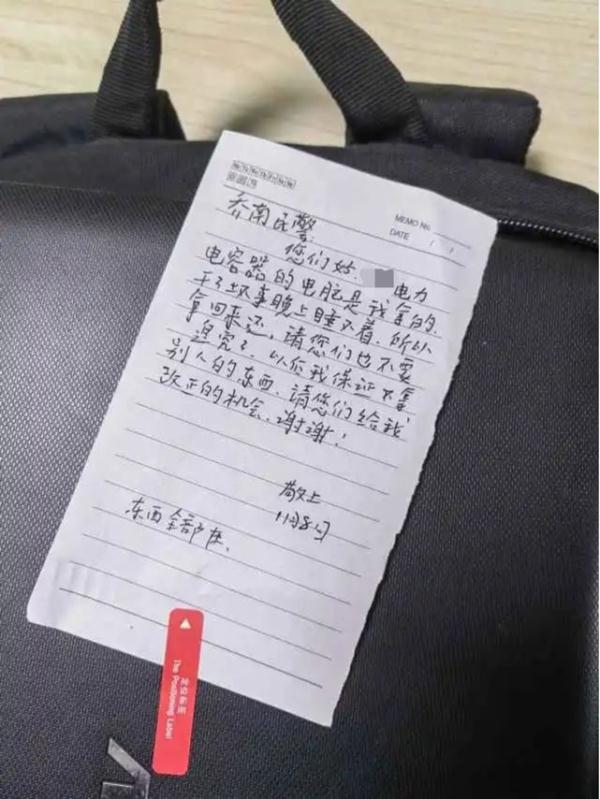 MEMO No.
DATE / /
乔南民警
您们好. 电力
电容器的电脑是我拿的.
干了坏事晚上睡不着.所以
拿回来还,请您们也不要
追究了.以后我保证不拿
别人的东西.请您们给我
改正的机会.谢谢!
敬上
11月8日
东西全部在.
定位标签
The Positioning Label